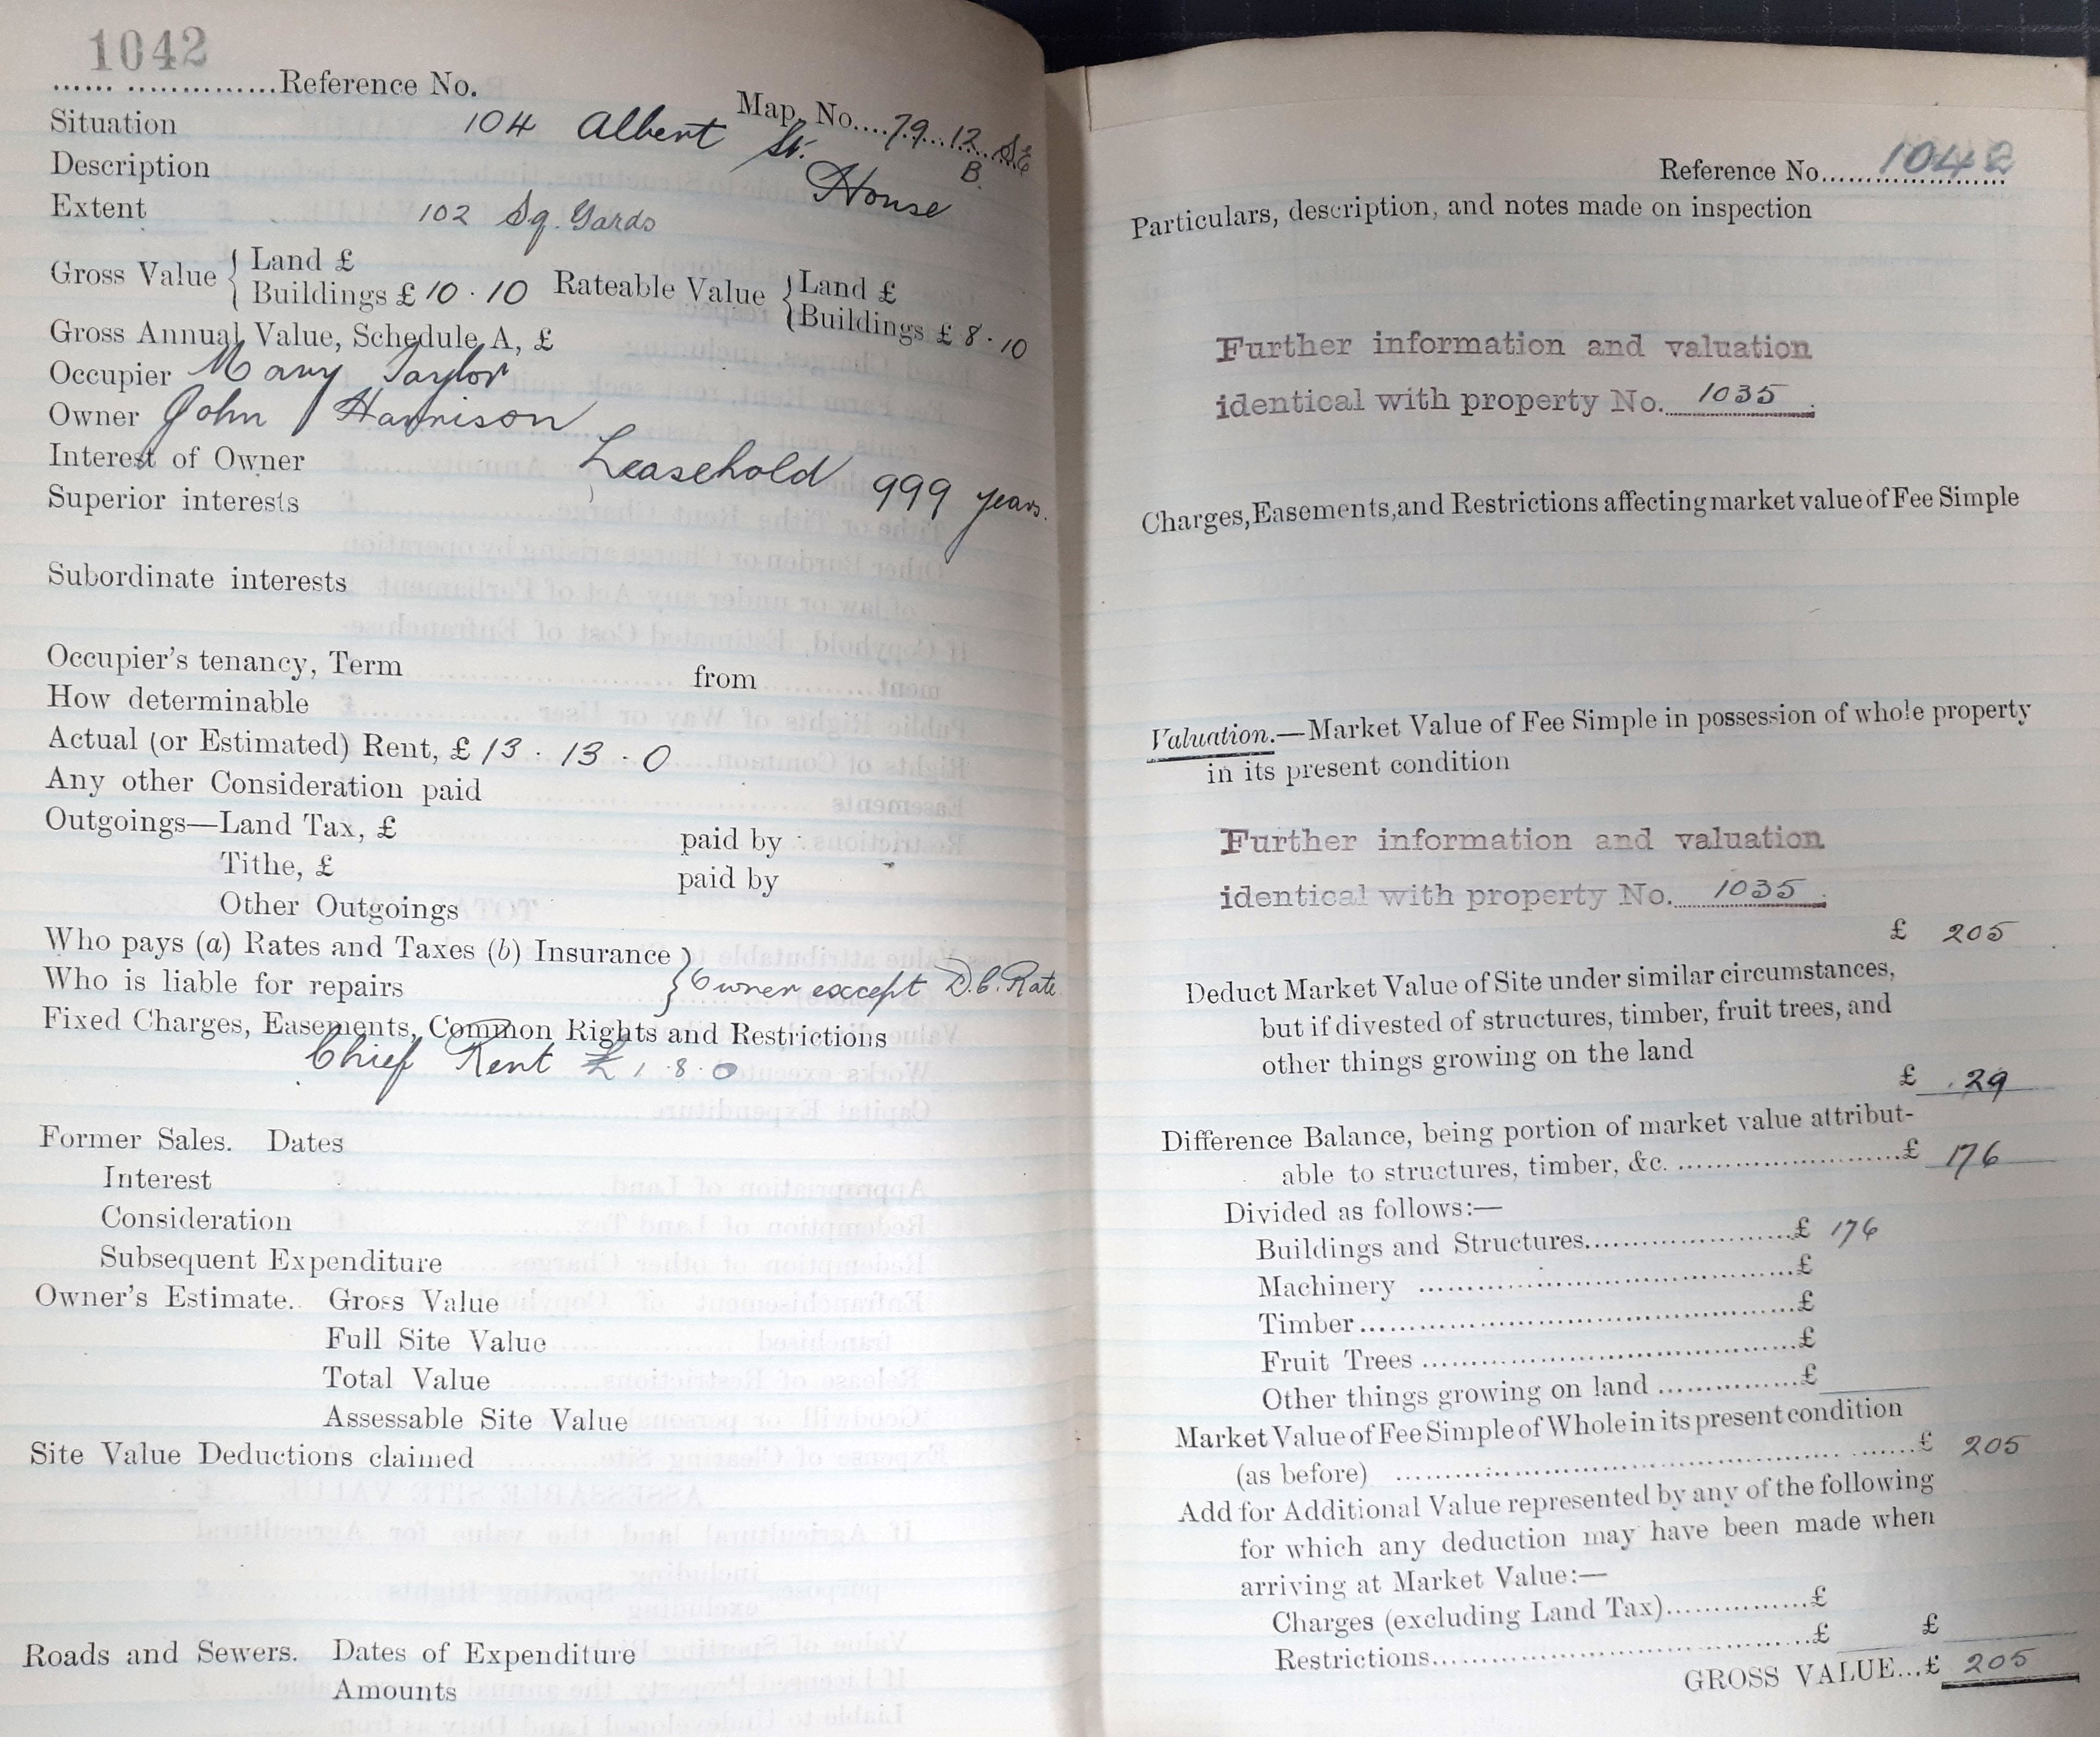 1042
...... ..............Reference No.
Map. No....79...12...SE
B.
Situation 104 Albert St.
Description House
Extent 102 Sq. Yards
Gross Value { Land £
Buildings £ 10 . 10 Rateable Value { Land £
Buildings £ 8 . 10
Gross Annual Value, Schedule A, £
Occupier Mary Taylor
Owner John Harrison
Interest of Owner Leasehold 999 years.
Superior interests
Subordinate interests
Occupier's tenancy, Term from
How determinable
Actual (or Estimated) Rent, £ 13 . 13 . 0
Any other Consideration paid
Outgoings—Land Tax, £ paid by
Tithe, £ paid by
Other Outgoings
Who pays (a) Rates and Taxes (b) Insurance
Who is liable for repairs } Owner except D.C. Rate
Fixed Charges, Easements, Common Rights and Restrictions
Chief Rent £ 1 . 8 . 0
Former Sales. Dates
Interest
Consideration
Subsequent Expenditure
Owner's Estimate. Gross Value
Full Site Value
Total Value
Assessable Site Value
Site Value Deductions claimed
Roads and Sewers. Dates of Expenditure
Amounts
Reference No. 1042
Particulars, description, and notes made on inspection
Further information and valuation
identical with property No. 1035
Charges, Easements, and Restrictions affecting market value of Fee Simple
Valuation.—Market Value of Fee Simple in possession of whole property
in its present condition
Further information and valuation
identical with property No. 1035
£ 205
Deduct Market Value of Site under similar circumstances,
but if divested of structures, timber, fruit trees, and
other things growing on the land
£ 29
Difference Balance, being portion of market value attribut-
able to structures, timber, &c. ........................£ 176
Divided as follows:—
Buildings and Structures........................£ 176
Machinery ........................£
Timber........................£
Fruit Trees ........................£
Other things growing on land ...............£
Market Value of Fee Simple of Whole in its present condition
(as before) ........................£ 205
Add for Additional Value represented by any of the following
for which any deduction may have been made when
arriving at Market Value:—
Charges (excluding Land Tax)...............£
Restrictions........................£ £
GROSS VALUE...£ 205